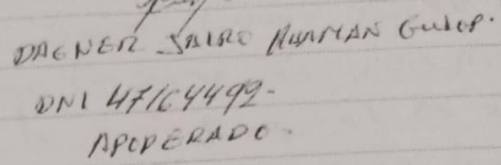 DAGNER JAIRO HUAMAN
DNI 47164492-
APODERADO.